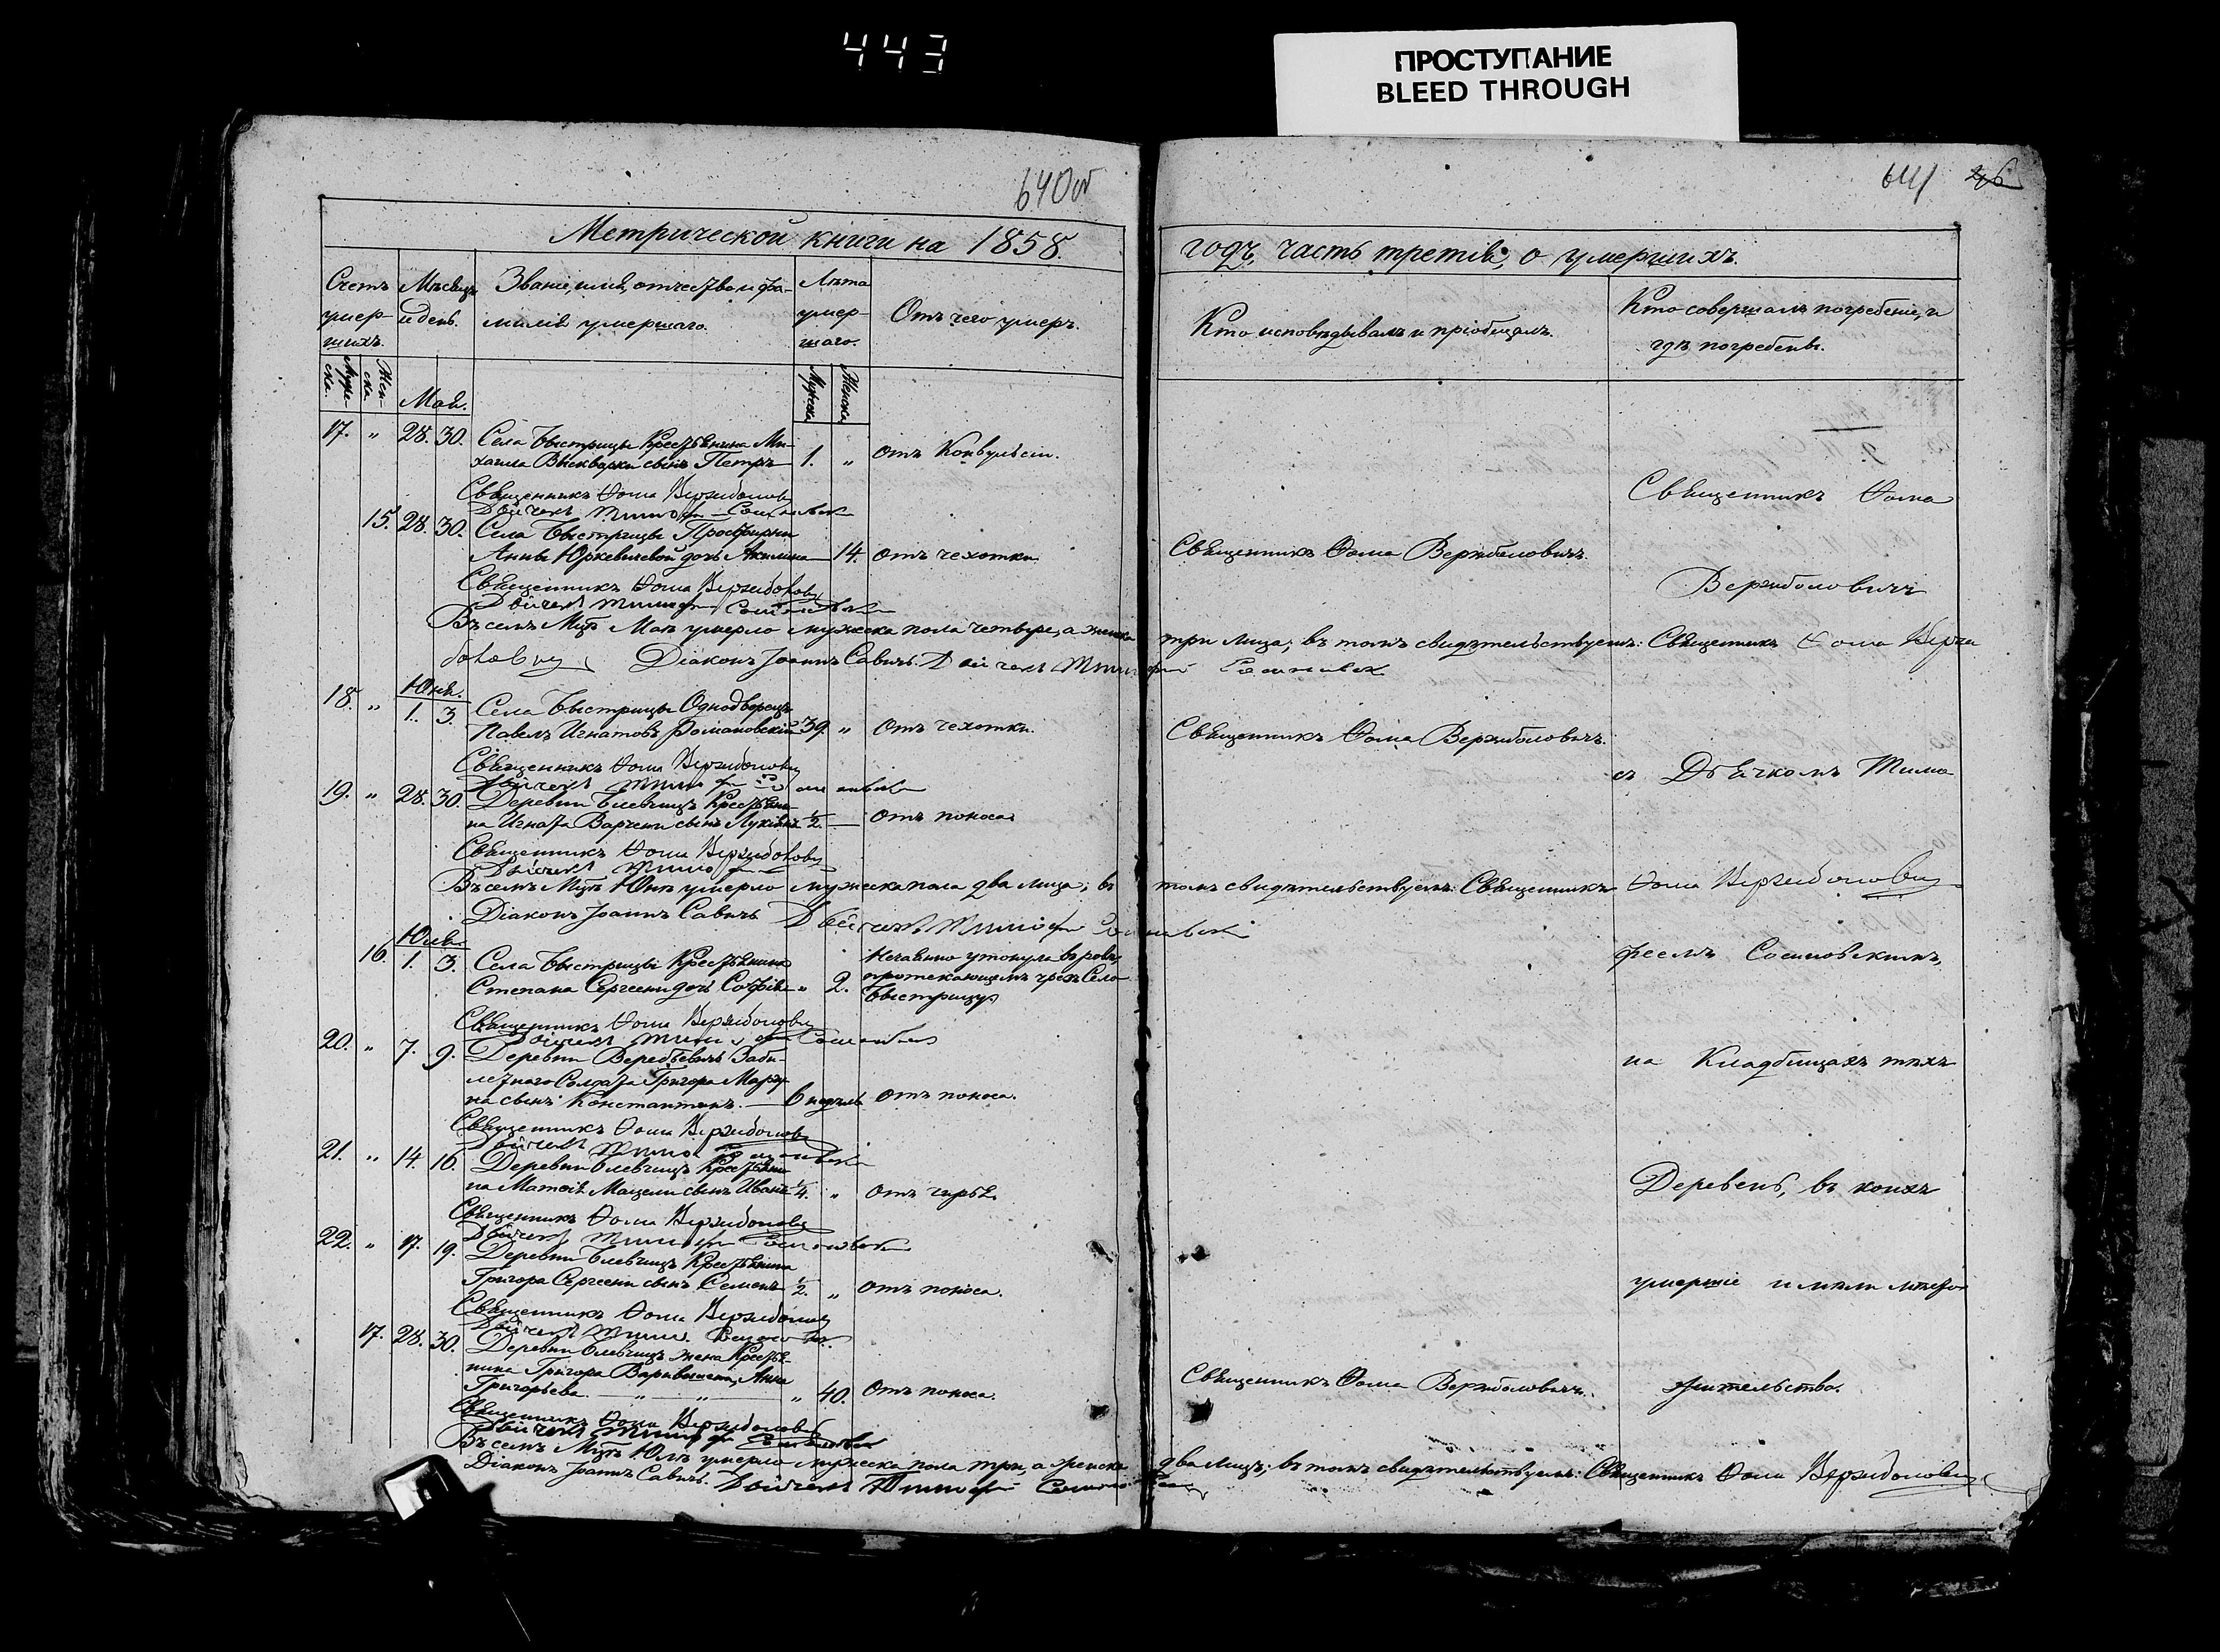 443
ПРОСТУПАНИЕ
BLEED THROUGH
640об
641 26
Метрической книги на 1858.
годъ, часть третія, о умершихъ.
Счетъ умер-шихъ.
Мѣсяцъ и день.
Званіе, имя, отчество и фа-
милія умершаго.
Лѣта умер-шаго.
Отъ чего умеръ.
Кто исповѣдывалъ и пріобщалъ.
Кто совершалъ погребеніе, и
гдѣ погребены.
Муже-ска.
Жен-ска
Мужеска
Женска
Маія.
17. " 28. 30. Села Быстрицы Крестьянина Ми-
хаила Выскварки сынъ Петръ 1. " Отъ Конвульсіи.
Священникъ Ѳома Вержболовичъ
Дьячекъ Тимофей Сосиновскій
Священникъ Ѳома
15. 28. 30. Села Быстрицы Просфирни
Анны Юркевичевой дочь Акилина 14. Отъ чехотки
Священникъ Ѳома Вержболовичъ.
Священникъ Ѳома Вержболовичъ
Вержболовичъ
Дьячекъ Тимофей Сосиновскій
Въ семъ Мцѣ Маѣ умерло мужеска пола четверо, а женска три лица; въ томъ свидѣтельствуемъ: Священникъ Ѳома Вержи
боловичъ Діаконъ Іоаннъ Савичъ. Дьячекъ Тимофей Сосиновскій
Юня.
18. " 1. 3. Села Быстрицы Однодворецъ
Павелъ Игнатовъ Романовскій 39. " Отъ чехотки.
Священникъ Ѳома Вержболовичъ.
Священникъ Ѳома Вержболовичъ
съ Дьячкомъ Тимо-
Дьячекъ Тимофей Сосиновскій
19. " 28. 30. Деревни Блевчицъ Крестьяни-
на Игната Варчени сынъ Лукіянъ ½. — Отъ поноса.
Священникъ Ѳома Вержболовичъ
Дьячекъ Тимофей
Въ семъ Мцѣ Юнѣ умерло мужеска пола два лица; въ томъ свидѣтельствуемъ: Священникъ Ѳома Вержболовичъ
Діаконъ Іоаннъ Савичъ Дьячекъ Тимофей Сосиновскій
Юля
16. 1. 3. Села Быстрицы Крестьянина
Степана Сергеени дочь Софія " 2. Нечаянно утонула въ ровѣ,
протекающемъ чрезъ Село
Быстрицу
феемъ Сосиновскимъ,
Священникъ Ѳома Вержболовичъ
Дьячекъ Тимофей Сосиновскій
20. " 7. 9. Деревни Веребьевичъ Заби-
летнаго Солдата Григора Марту-
на сынъ Константинъ. — 6 недѣль Отъ поноса.
на Кладбищахъ тѣхъ
Священникъ Ѳома Вержболовичъ
Дьячекъ Тимофей Сосиновскій
21. " 14. 16. Деревни Блевчицъ Крестьяни-
на Матѳія Мацели сынъ Иванъ ¼. "
Деревень, въ коихъ
Священникъ Ѳома Вержболовичъ
Дьячекъ Тимофей Сосиновскій
22. " 17. 19. Деревни Блевчицъ Крестьянина
Григора Сергеени сынъ Семенъ ½. " Отъ поноса.
умершіе имѣли мѣсто
Священникъ Ѳома Вержболовичъ
Дьячекъ Тимофей Сосиновскій
17. 28. 30. Деревни Блевчицъ жена Крестья-
нина Григора Анна
Григорьева. — " " " 40. Отъ поноса.
Священникъ Ѳома Вержболовичъ.
жительство.
Священникъ Ѳома Вержболовичъ
Дьячекъ Тимофей Сосиновскій
Въ семъ Мцѣ Юлѣ умерло мужеска пола три, а женска два лица; въ томъ свидѣтельствуемъ: Священникъ Ѳома Вержболовичъ
Діаконъ Іоаннъ Савичъ. Дьячекъ Тимофей Сосиновскій